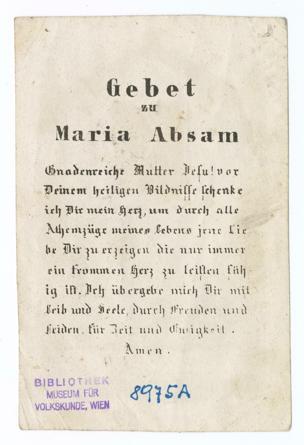 Gebet
zu
Maria Absam
Gnadenreiche Mutter Jesu! vor
Deinem heiligen Bildnisse schenke
ich Dir mein Herz, um durch alle
Athemzüge meines Lebens jene Lie
be Dir zu erzeigen die nur immer
ein frommen Herz zu leisten fäh
ig ist. Ich übergebe mich Dir mit
Leib und Seele, durch Freuden und
Leiden, für Zeit und Ewigkeit.
Amen.
BIBLIOTHEK
MUSEUM FÜR
VOLKSKUNDE, WIEN
8975A